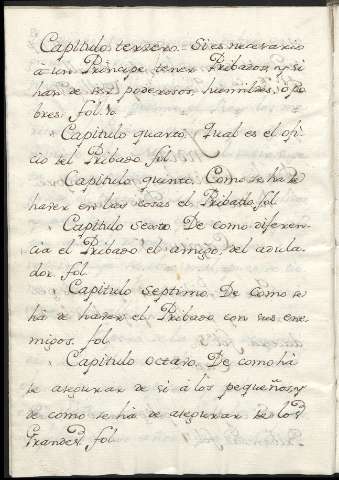 Capitulo terzero. Si es necesario
à un Principe tener Pribados, y si
han de ser poderosos, humildes, ò po
bres. fol.
Capitulo quarto. Qual es el ofi
cio del Pribado fol.
Capitulo quinto. Como se ha de
haver en las cosas el Pribado. fol.
Capitulo sexto. De como diferen
cia el Pribado el amigo, del adula-
dor. fol.
Capitulo septimo. De como se
hà de haver el Pribado con sus ene
migos. fol.
Capitulo octavo. De como hà
de asegurar de si à los pequeños, y
de como se hà de asegurar de los
Grandes. fol.